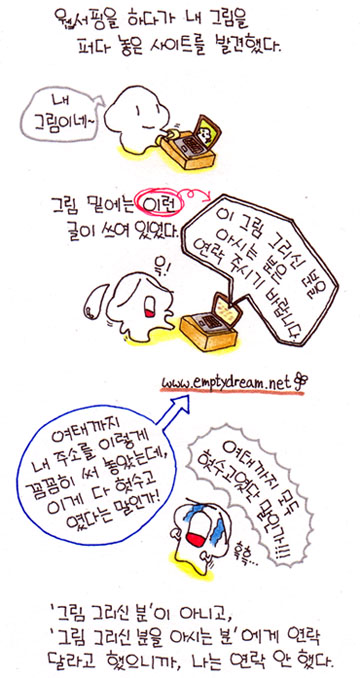 웹서핑을 하다가 내 그림을
퍼다 놓은 사이트를 발견했다.
내
그림이네~
그림 밑에는 이런
글이 쓰여 있었다.
이 그림 그리신 분을
아시는 분은
연락 주시기 바랍니다
윽!
www.emptydream.net
여태까지
내 주소를 이렇게
꼼꼼히 써 놓았는데,
이게 다 헛수고
였다는 말인가!
여태까지 모두
헛수고였단 말인가!!!
흑흑...
'그림 그리신 분'이 아니고,
'그림 그리신 분을 아시는 분'에게 연락
달라고 했으니까, 나는 연락 안 했다.